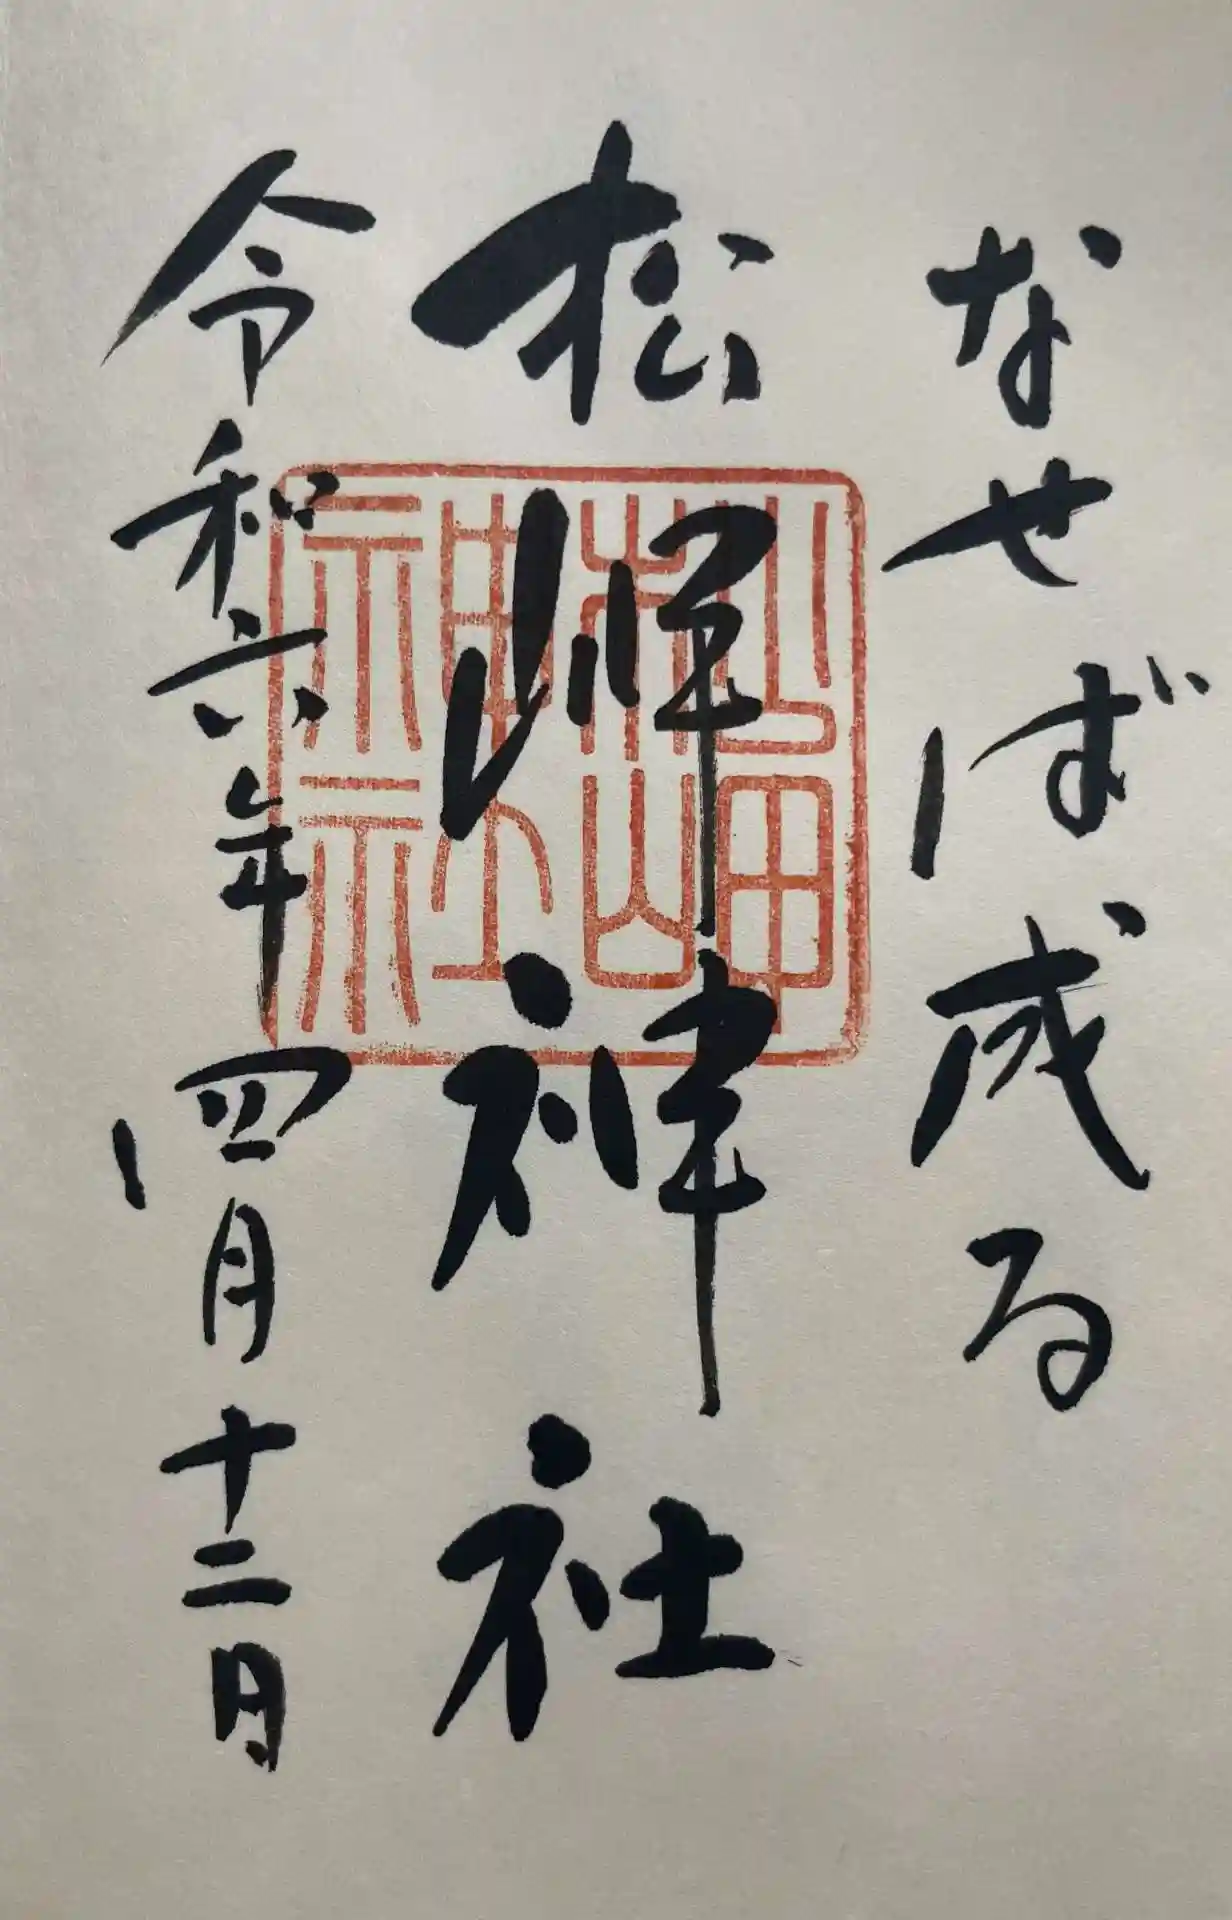 なせば成る
松岬神社
令和六年四月十二日
松岬神社